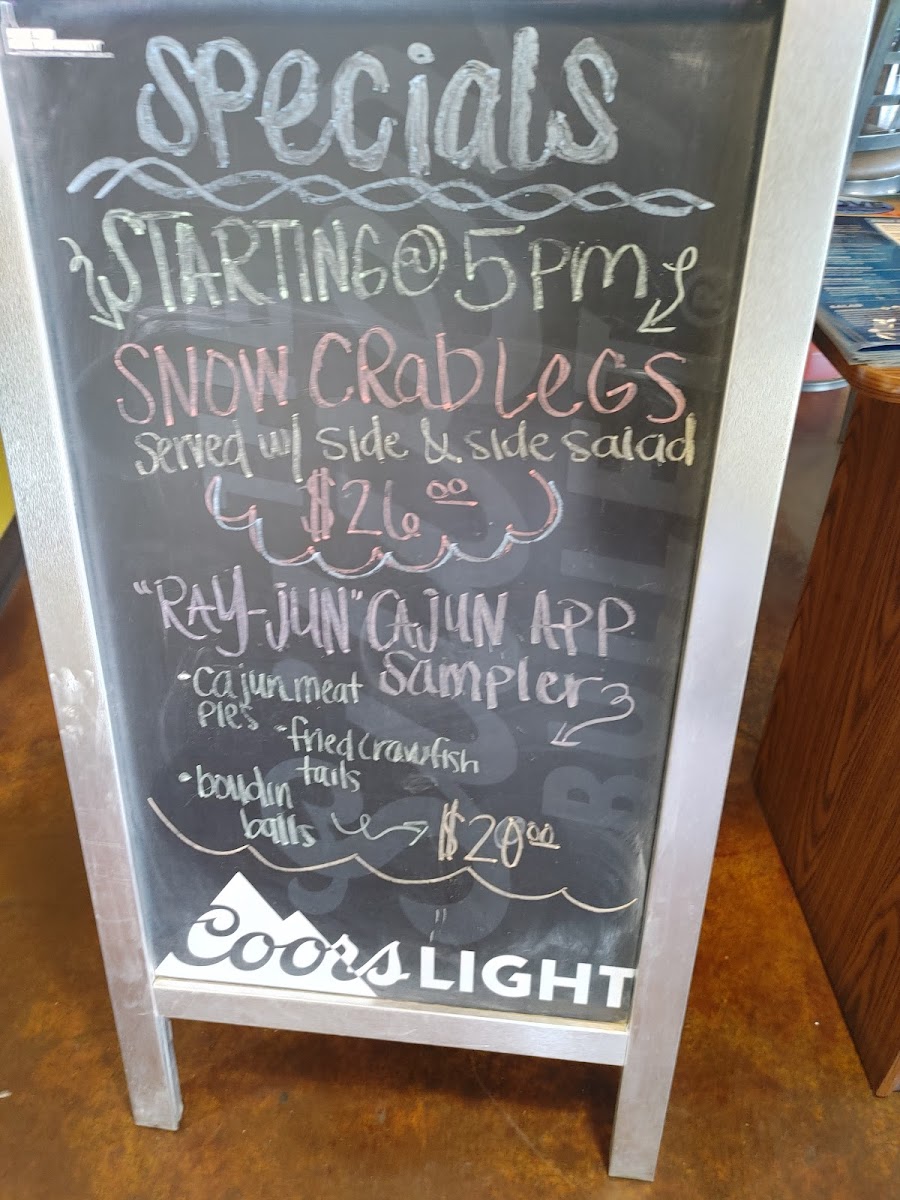 Specials
STARTING @ 5pm
SNOW CRab LeGS
Served w/ side & side salad
$26.00
"RAY-JUN" CAJUN APP
Sampler
•cajun meat
pies
•fried crawfish
tails
•boudin
balls
$20.00
Coors LIGHT